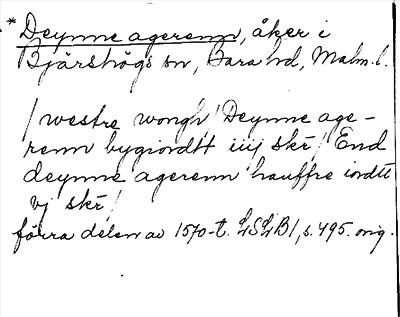 *Deynne agerenn, åker i
Bjärshögs sn, Bara hd, Malm. l.
/ westre wongh / Deynne age-
renn bygiordtt iiij skr / End
deynne agerenn hauffre iordtt
vj skr /
förra delen av 1570-t. LSLB1, s. 495. orig.